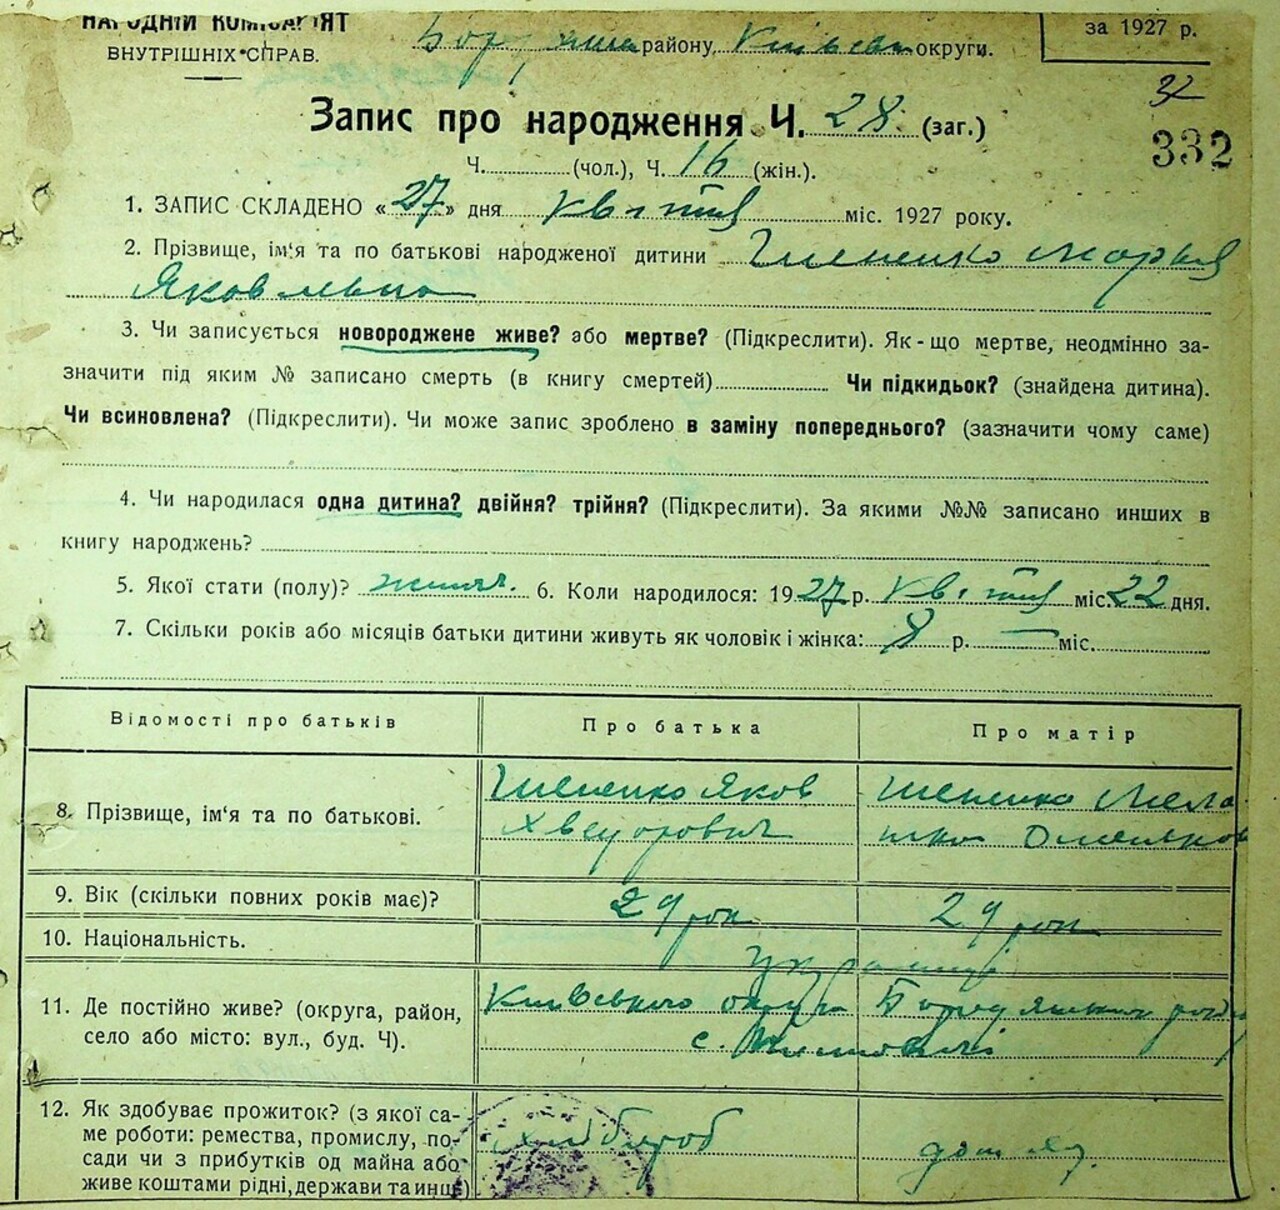 НАРОДНІЙ КОМІСАРІЯТ
ВНУТРІШНІХ СПРАВ.
району, Київськ округи.
за 1927 р.
32
332
Запис про народження Ч. 28 (заг.)
Ч. (чол.), Ч. 16 (жін.).
1. ЗАПИС СКЛАДЕНО «27» дня квітня міс. 1927 року.
2. Прізвище, ім'я та по батькові народженої дитини Шененко Марья
Яковльвна
3. Чи записується новороджене живе? або мертве? (Підкреслити). Як-що мертве, неодмінно за-
значити під яким № записано смерть (в книгу смертей) Чи підкидьок? (знайдена дитина).
Чи всиновлена? (Підкреслити). Чи може запис зроблено в заміну попереднього? (зазначити чому саме)
4. Чи народилася одна дитина? двійня? трійня? (Підкреслити). За якими №№ записано инших в
книгу народжень?
5. Якої стати (полу)? жіноч. 6. Коли народилося: 1927 р. квітня міс. 22 дня.
7. Скільки років або місяців батьки дитини живуть як чоловік і жінка: 8 р. — міс.
Відомості про батьків Про батька Про матір
8. Прізвище, ім'я та по батькові.
Шененко Яков
Хведорович
Шененко Мела
шка Омеляков
9. Вік (скільки повних років має)? 29 рок 29 рок
10. Національність. українці
11. Де постійно живе? (округа, район,
село або місто: вул., буд. Ч).
Київського округа Бородянськ район
с.
12. Як здобуває прожиток? (з якої са-
ме роботи: ремества, промислу, по-
сади чи з прибутків од майна або
живе коштами рідні, держави та инш.)
хлібороб